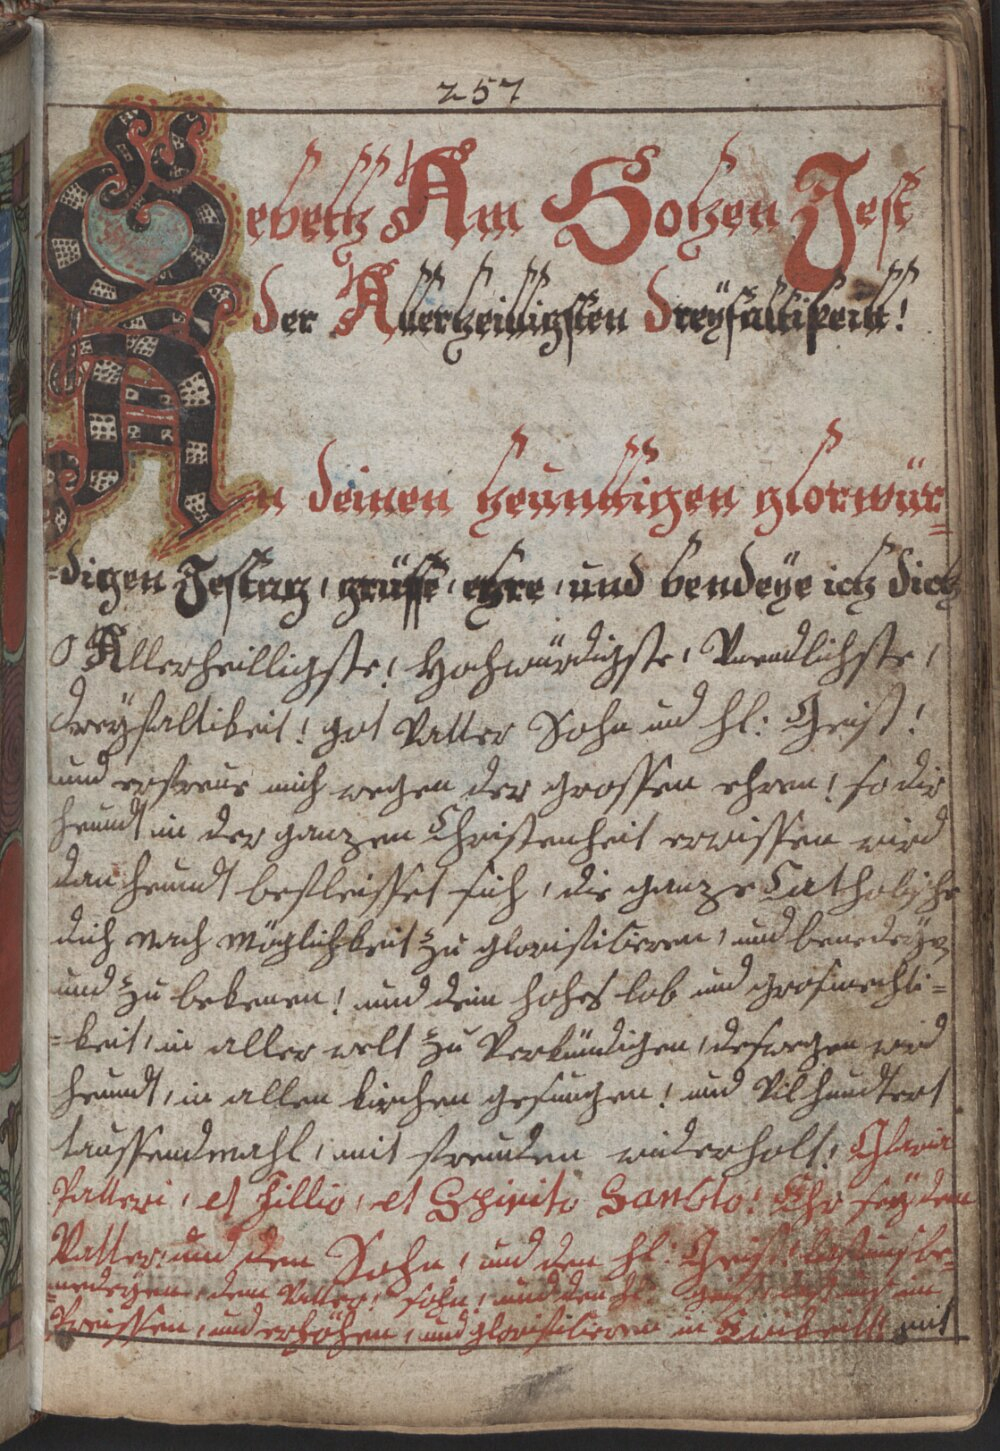 257
Gebett Am Hohen Fest
der Allerheilligsten dreyfaltikeitt!
An deinen heunttigen glorwür=
=digen Festtag, grüsse, ehre, und bendeÿe ich dich
O Allerheilligste! Hochwürdigste, Unendlichste,
dreÿfaltikeit! got Vatter Sohn und hl: Geist!
und erfreue mich wegen der grossen ehren! so dir
heundt in der ganzen Christenheit erwissen wird
dan heundt befleisset sich, die ganze Catholische
dich nach möglichkeit zu glorificieren, und benedeÿen
und zu bekenen! und dein hohes lob und grosmechti=
=keit, in aller welt zu Verkündigen, deswegen wird
heundt, in allen kirchen gesungen! und Vil hundtert
taussendmahl, mit freuden widerholt! Gloria
Patteri, et Fillio, et Spirito Sancto! Ehr seÿ den
Vatter, und den Sohn, und den hl: Geist! last uns be=
=nedeÿen, dem Vatter! sohn! und den hl: geist, last uns im
Preissen, und erhöhen, und glorificieren in Einikeitt mit